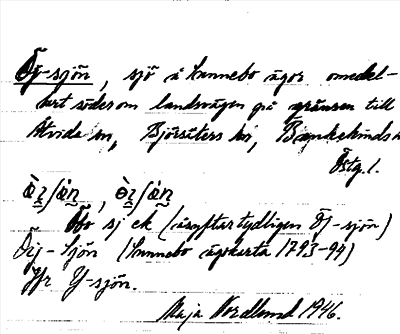 Öj-sjön, sjö å Lunnebo ägor omedel-
bart söder om landsvägen på gränsen till
Åtvids sn, Björsäters sn, Bankekinds h
Östg. l.
Ebo sj ek (åsyftar tydligen Öj-sjön)
Öij-Sjön (Lunnebo ägokarta 1793-94)
Jfr Y-sjön.
Maja Nordlund 1946.